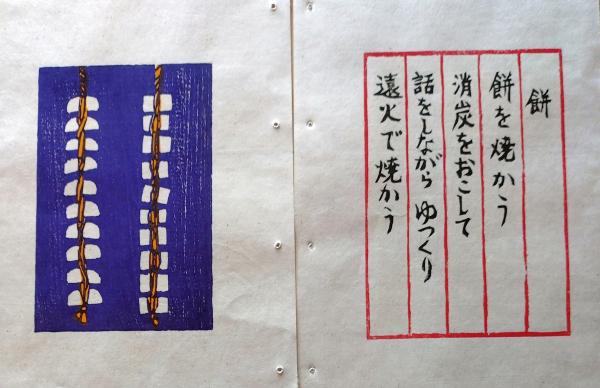 餅
餅を焼かう
消炭をおこして
話をしながら ゆつくり
遠火で焼かう